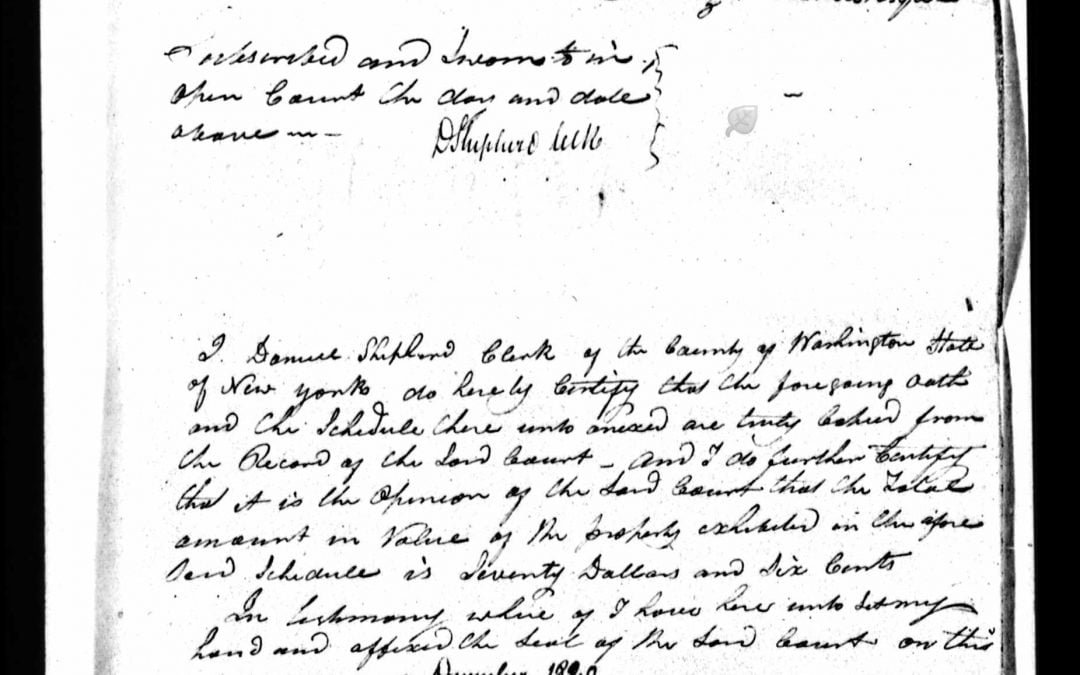 Subscribed and Sworn to in
Open Court the day and date
above
DShepherd Clk
I Daniel Shepherd Clerk of the County of Washington State
of New york do hereby Certify that the foregoing oath
and the Schedule there unto anexed are truly Copied from
the Record of the Said Court _ and I do further Certify
that it is the Opinion of the Said Court that the Total
amount in Value of the property exhibited in the afore
Said Schedule is Seventy Dollars and Six Cents
In testimony where of I have here unto Set my
hand and affixed the Seal of the Said Court on this
December 1820